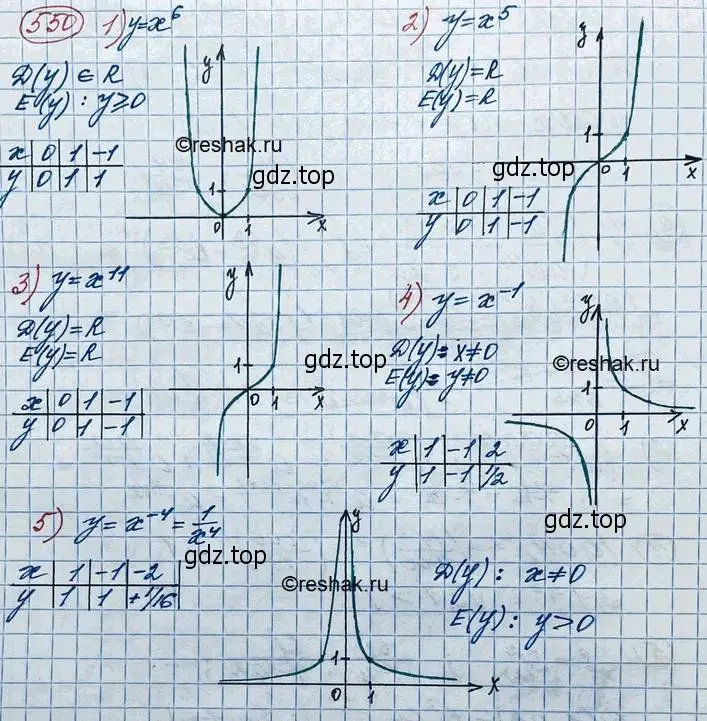 550 1) y=x⁶
D(y) ∈ R
E(y): y≥0
x | 0 | 1 | -1
y | 0 | 1 | 1
y
1
0 1 x
©reshak.ru
gdz.top
2) y=x⁵
D(y)=R
E(y)=R
x | 0 | 1 | -1
y | 0 | 1 | -1
y
1
0 1 x
gdz.top
3) y=x¹¹
D(y)=R
E(y)=R
x | 0 | 1 | -1
y | 0 | 1 | -1
y
1
0 1 x
gdz.top
4) y=x⁻¹
D(y)= x≠0
E(y)= y≠0
x | 1 | -1 | 2
y | 1 | -1 | 1/2
y
1
0 1 x
©reshak.ru
gdz.top
5) y=x⁻⁴=1/x⁴
gdz.top
x | 1 | -1 | -2
y | 1 | 1 | +1/16
y
1
0 1 x
©reshak.ru
D(y): x≠0
E(y): y>0